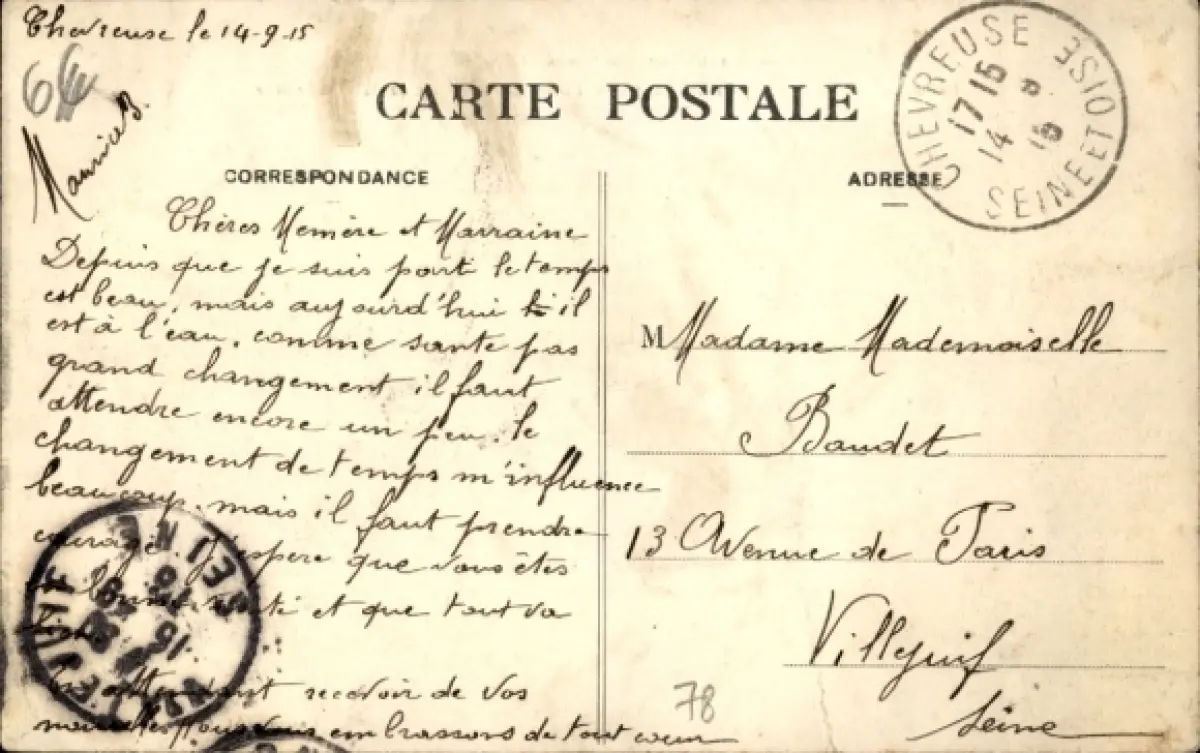 Chevreuse le 14-9-15
Maurice B.
CARTE POSTALE
CHEVREUSE
SEINE ET OISE
17 15
14 9
15
CORRESPONDANCE
ADRESSE
Chères Mémère et Marraine
Depuis que je suis parti le temps
est beau, mais aujourd'hui il
est à l'eau, comme santé pas
grand changement il faut
attendre encore un peu, le
changement de temps m'influence
beaucoup, mais il faut prendre
courage. J'espère que vous êtes
bonne santé et que tout va
bien.
En attendant recevoir de vos
nouvelles nous vous embrassons de tout coeur
M Madame Mademoiselle
Baudet
13 Avenue de Paris
Villejuif
Seine
78
VILLEJUIF
SEINE